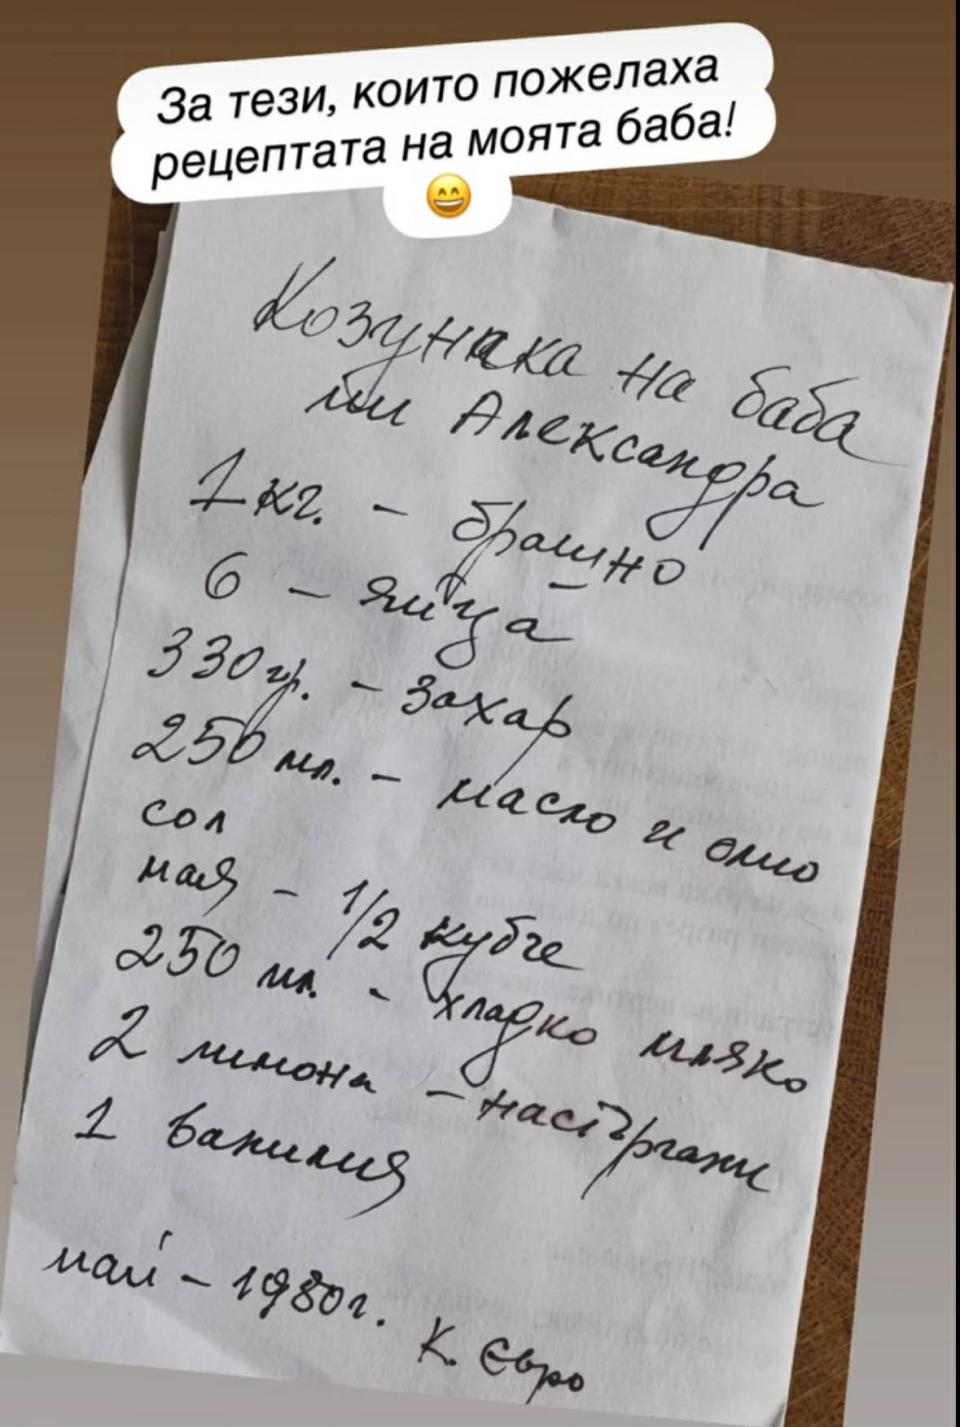 За тези, които пожелаха
рецептата на моята баба!
😄
Козунака на баба
ми Александра
1 кг. - брашно
6 - яйца
330 гр. - захар
250 мл. - масло и олио
сол
мая - 1/2 кубче
250 мл. - хладко мляко
2 лимона - настъргани
1 ванилия
май - 1980г.
К. Євро